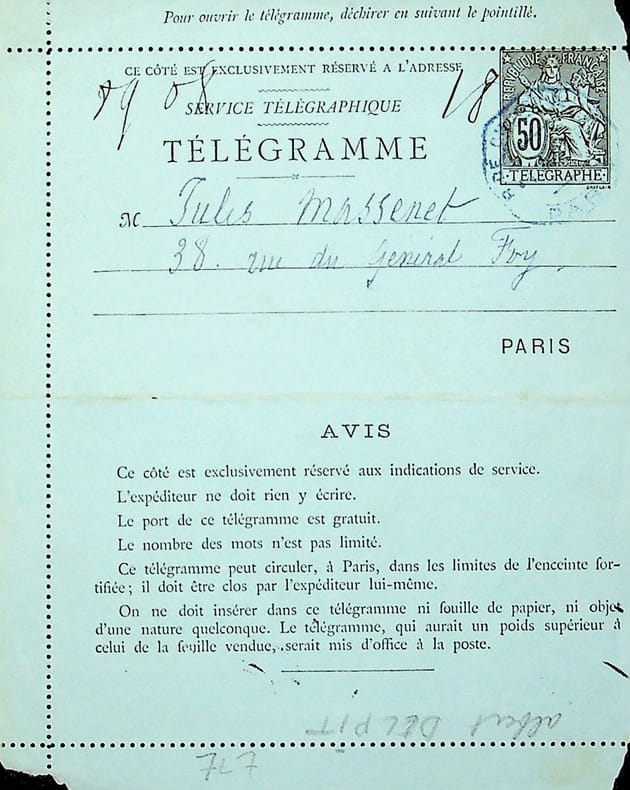 Pour ouvrir le télégramme, déchirer en suivant le pointillé.
CE CÔTÉ EST EXCLUSIVEMENT RÉSERVÉ A L'ADRESSE
SERVICE TÉLÉGRAPHIQUE
TÉLÉGRAMME
RÉPUBLIQUE FRANÇAISE
50
TÉLÉGRAPHE
M Jules Massenet
38. rue du Général Foy
PARIS
AVIS
Ce côté est exclusivement réservé aux indications de service.
L'expéditeur ne doit rien y écrire.
Le port de ce télégramme est gratuit.
Le nombre des mots n'est pas limité.
Ce télégramme peut circuler, à Paris, dans les limites de l'enceinte for-
tifiée; il doit être clos par l'expéditeur lui-même.
On ne doit insérer dans ce télégramme ni feuille de papier, ni objet
d'une nature quelconque. Le télégramme, qui aurait un poids supérieur à
celui de la feuille vendue, serait mis d'office à la poste.
albert DELPIT